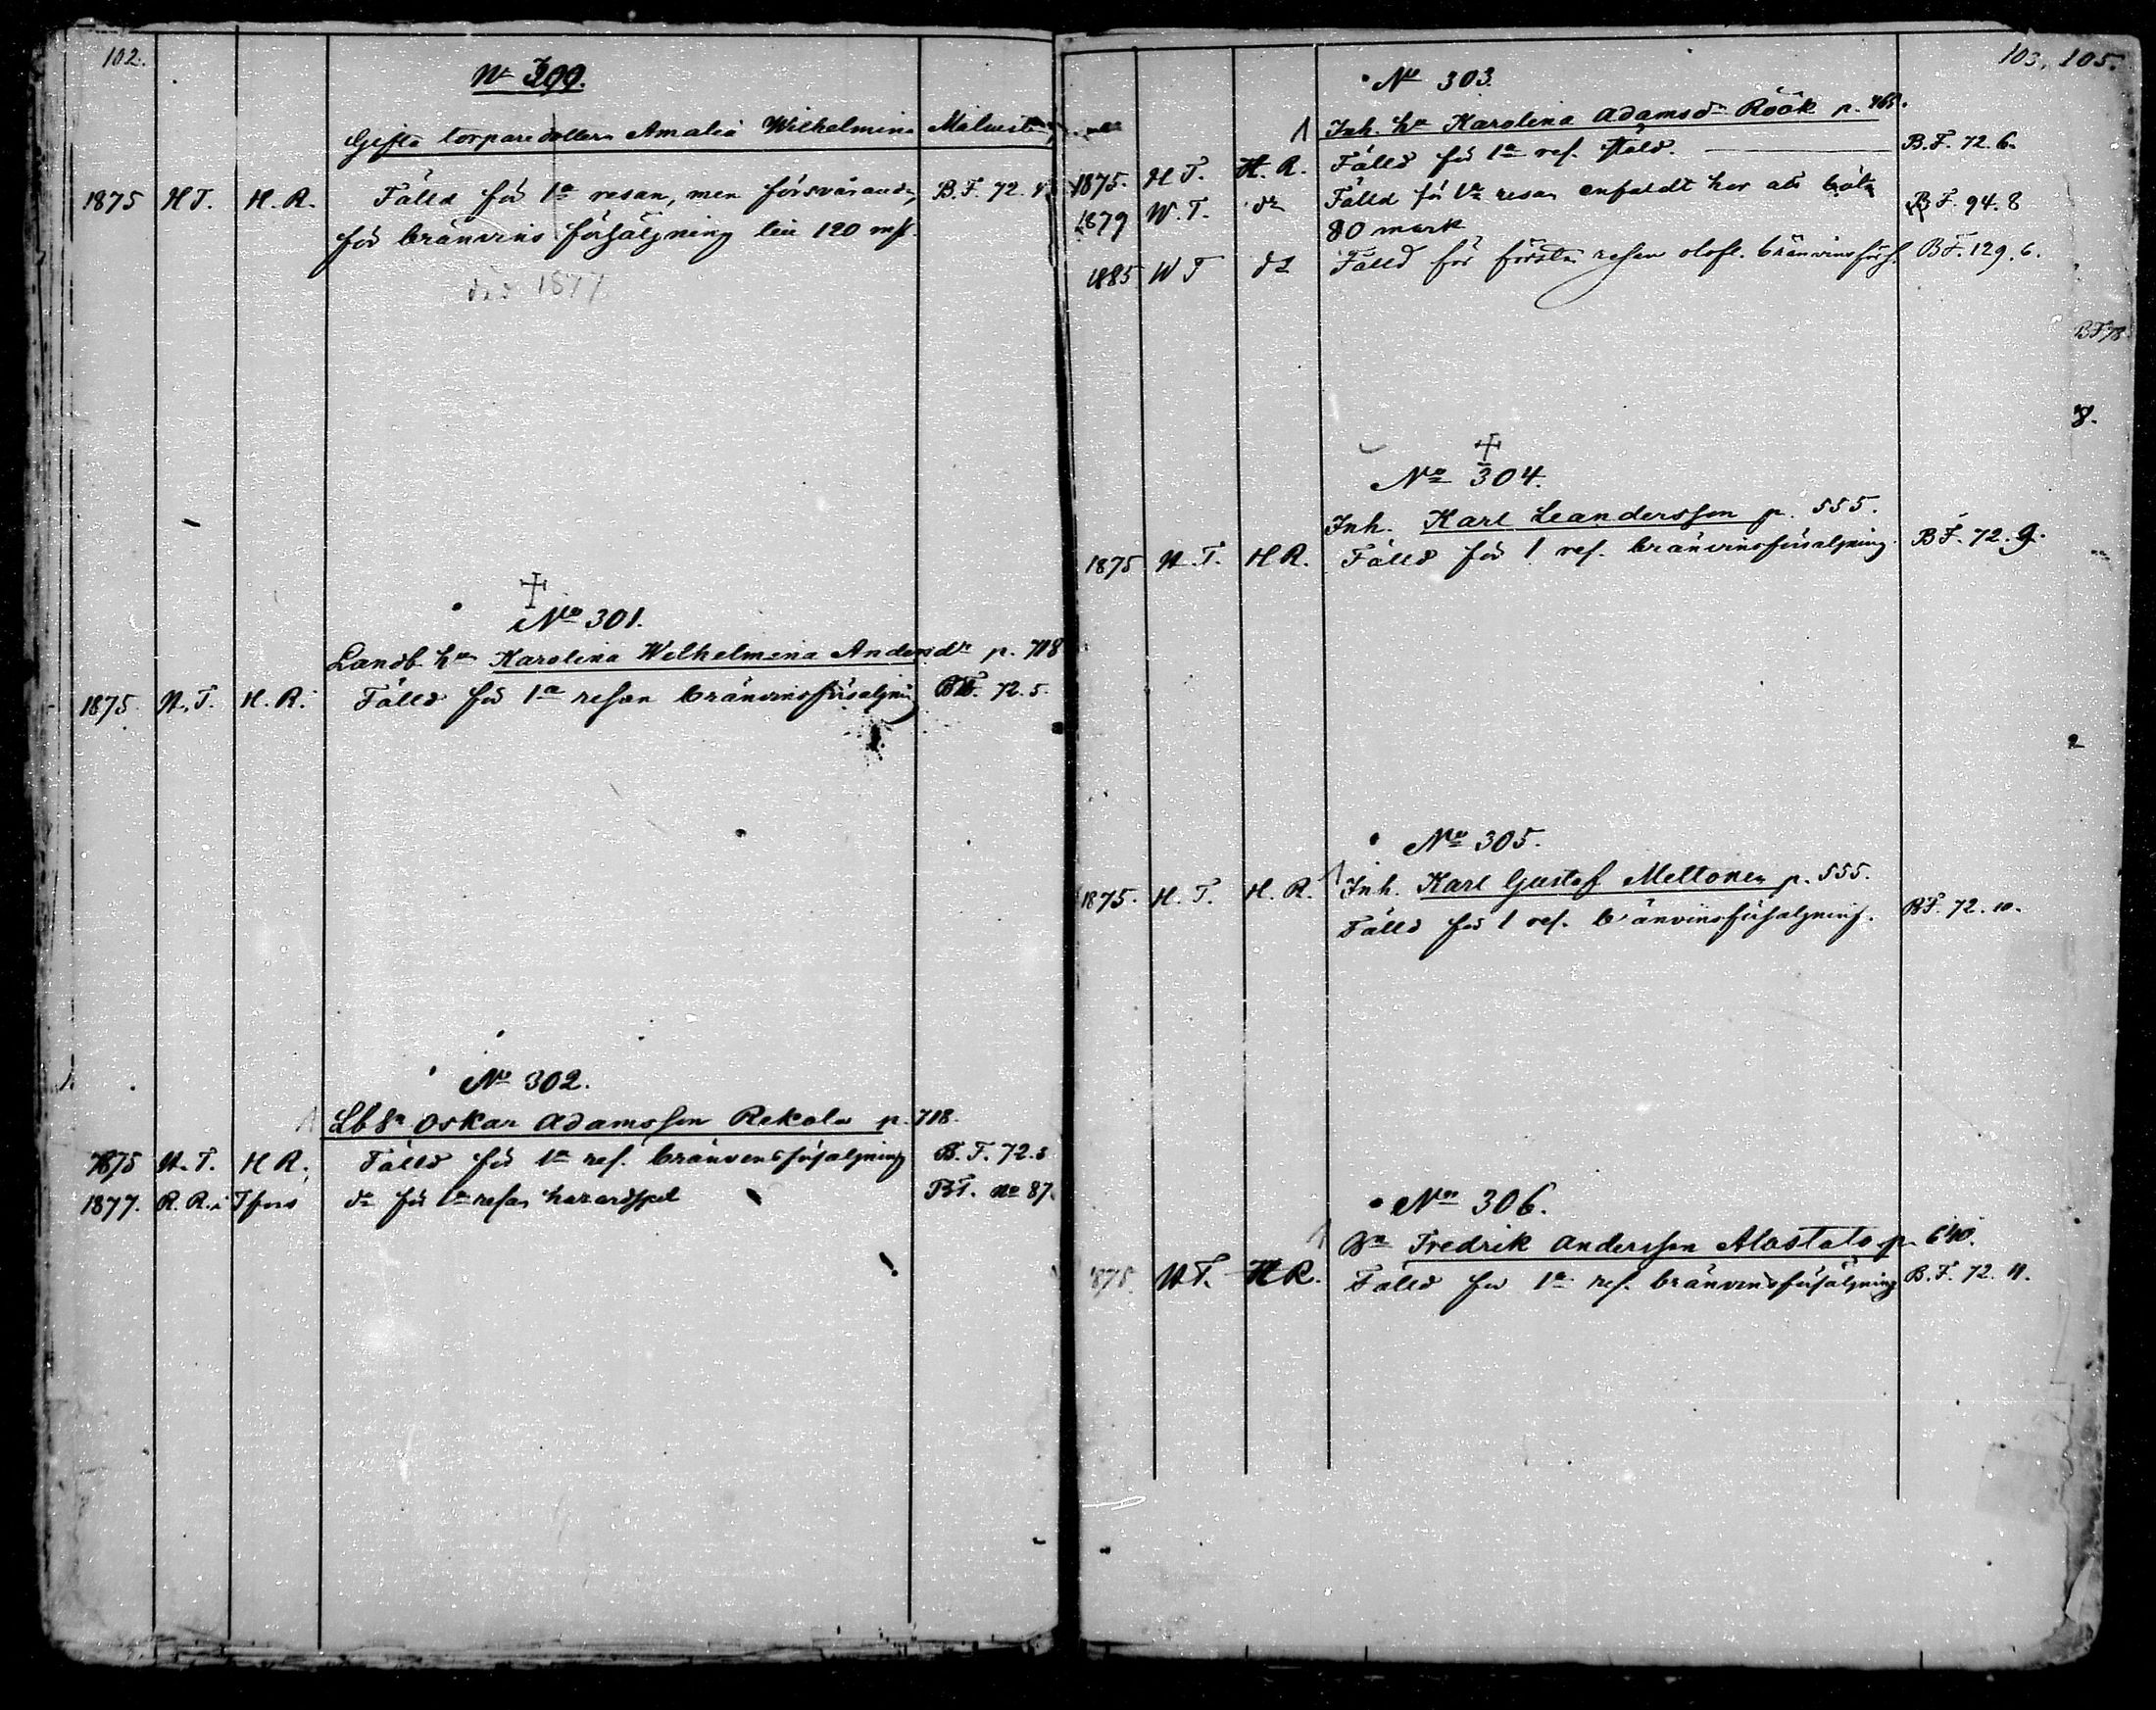 102.
No 300.
Gifta torparedottern Amalia Wilhelmina
1875 H T. H. R. Fälld för 1a resan, men försvårande, B. F. 72. 4
för bränvins försäljning till 120 mk.
död 1877
No 301.
Landb. hu Karolina Wilhelmina Andersdr p. 718
1875 H. T. H. R. Fälld för 1a resan bränvinsförsäljning BF. 72. 5.
No 302.
Lb Sn Oskar Adamsson Rekola p. 718.
1875 H. T. H R. Fälld för 1a res. bränvinsförsäljning B. F. 72. 8
1877. R. R. i Tfors do för 1a resan hazardspel BF. No 87.
103. 105.
No 303.
Inh. hu Karolina Adamsdr Röök p. 465.
1875. H T. H. R. Fälld för 1a res. stöld. B. F. 72. 6.
1879 W. T. do Fälld för 1a resan enfaldt hor att böta B F. 94. 8
80 mark
1885 W T do Fälld för första resan olofl. bränvinsförs. BF. 129. 6.
BF 78
8.
No 304.
Inh. Karl Leandersson p. 555.
1875 H. T. H R. Fälld för 1 res. bränvinsförsäljning. B F. 72. 9.
No 305.
1875. H. T. H. R. Inh. Karl Gustaf Mellonen p. 555.
Fälld för 1 res. bränvinsförsäljning. BF. 72. 10.
No 306.
Fredrik Andersson Alastalo p. 640.
1875. H T. H R. Fälld för 1a res. bränvinsförsäljning B. F. 72. 11.